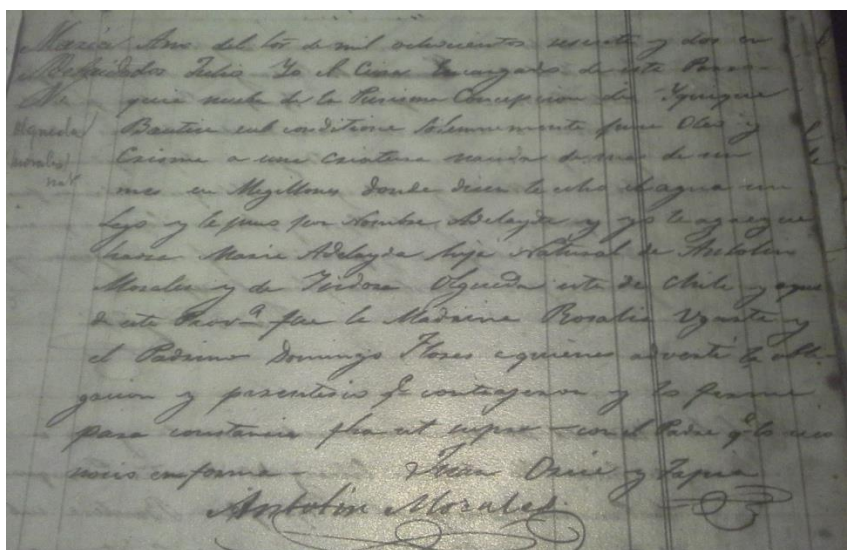 Maria Ano del Sor de mil ochocientos sesenta y dos en
Adelaida dos Julio Yo el Cura Encargado de esta Parro-
quia nueba de la Purisima Concepcion de Yquique
Olgueda Bautice sub conditione solemnemente puse Oleo y
Morales Crisma a una criatura nacida de mas de un
nat. mes en Megillones donde dicen le echo el agua un
Lego y le puso por Nombre Adelayda y yo le agregue
Maria Adelayda hija Natural de Antolin
Morales y de Isidora Olgueda esta de Chile y aquel
de esta Prova. fue la Madrina Rosalia Ugarte y
el Padrino Domingo Flores a quienes adverti la obli-
gacion y parentesco qe. contrageron y lo firme
para constancia fha ut supra - con el Padre qe. lo reco
nocio en forma - Juan Osie y Tapia
Antolin Morales